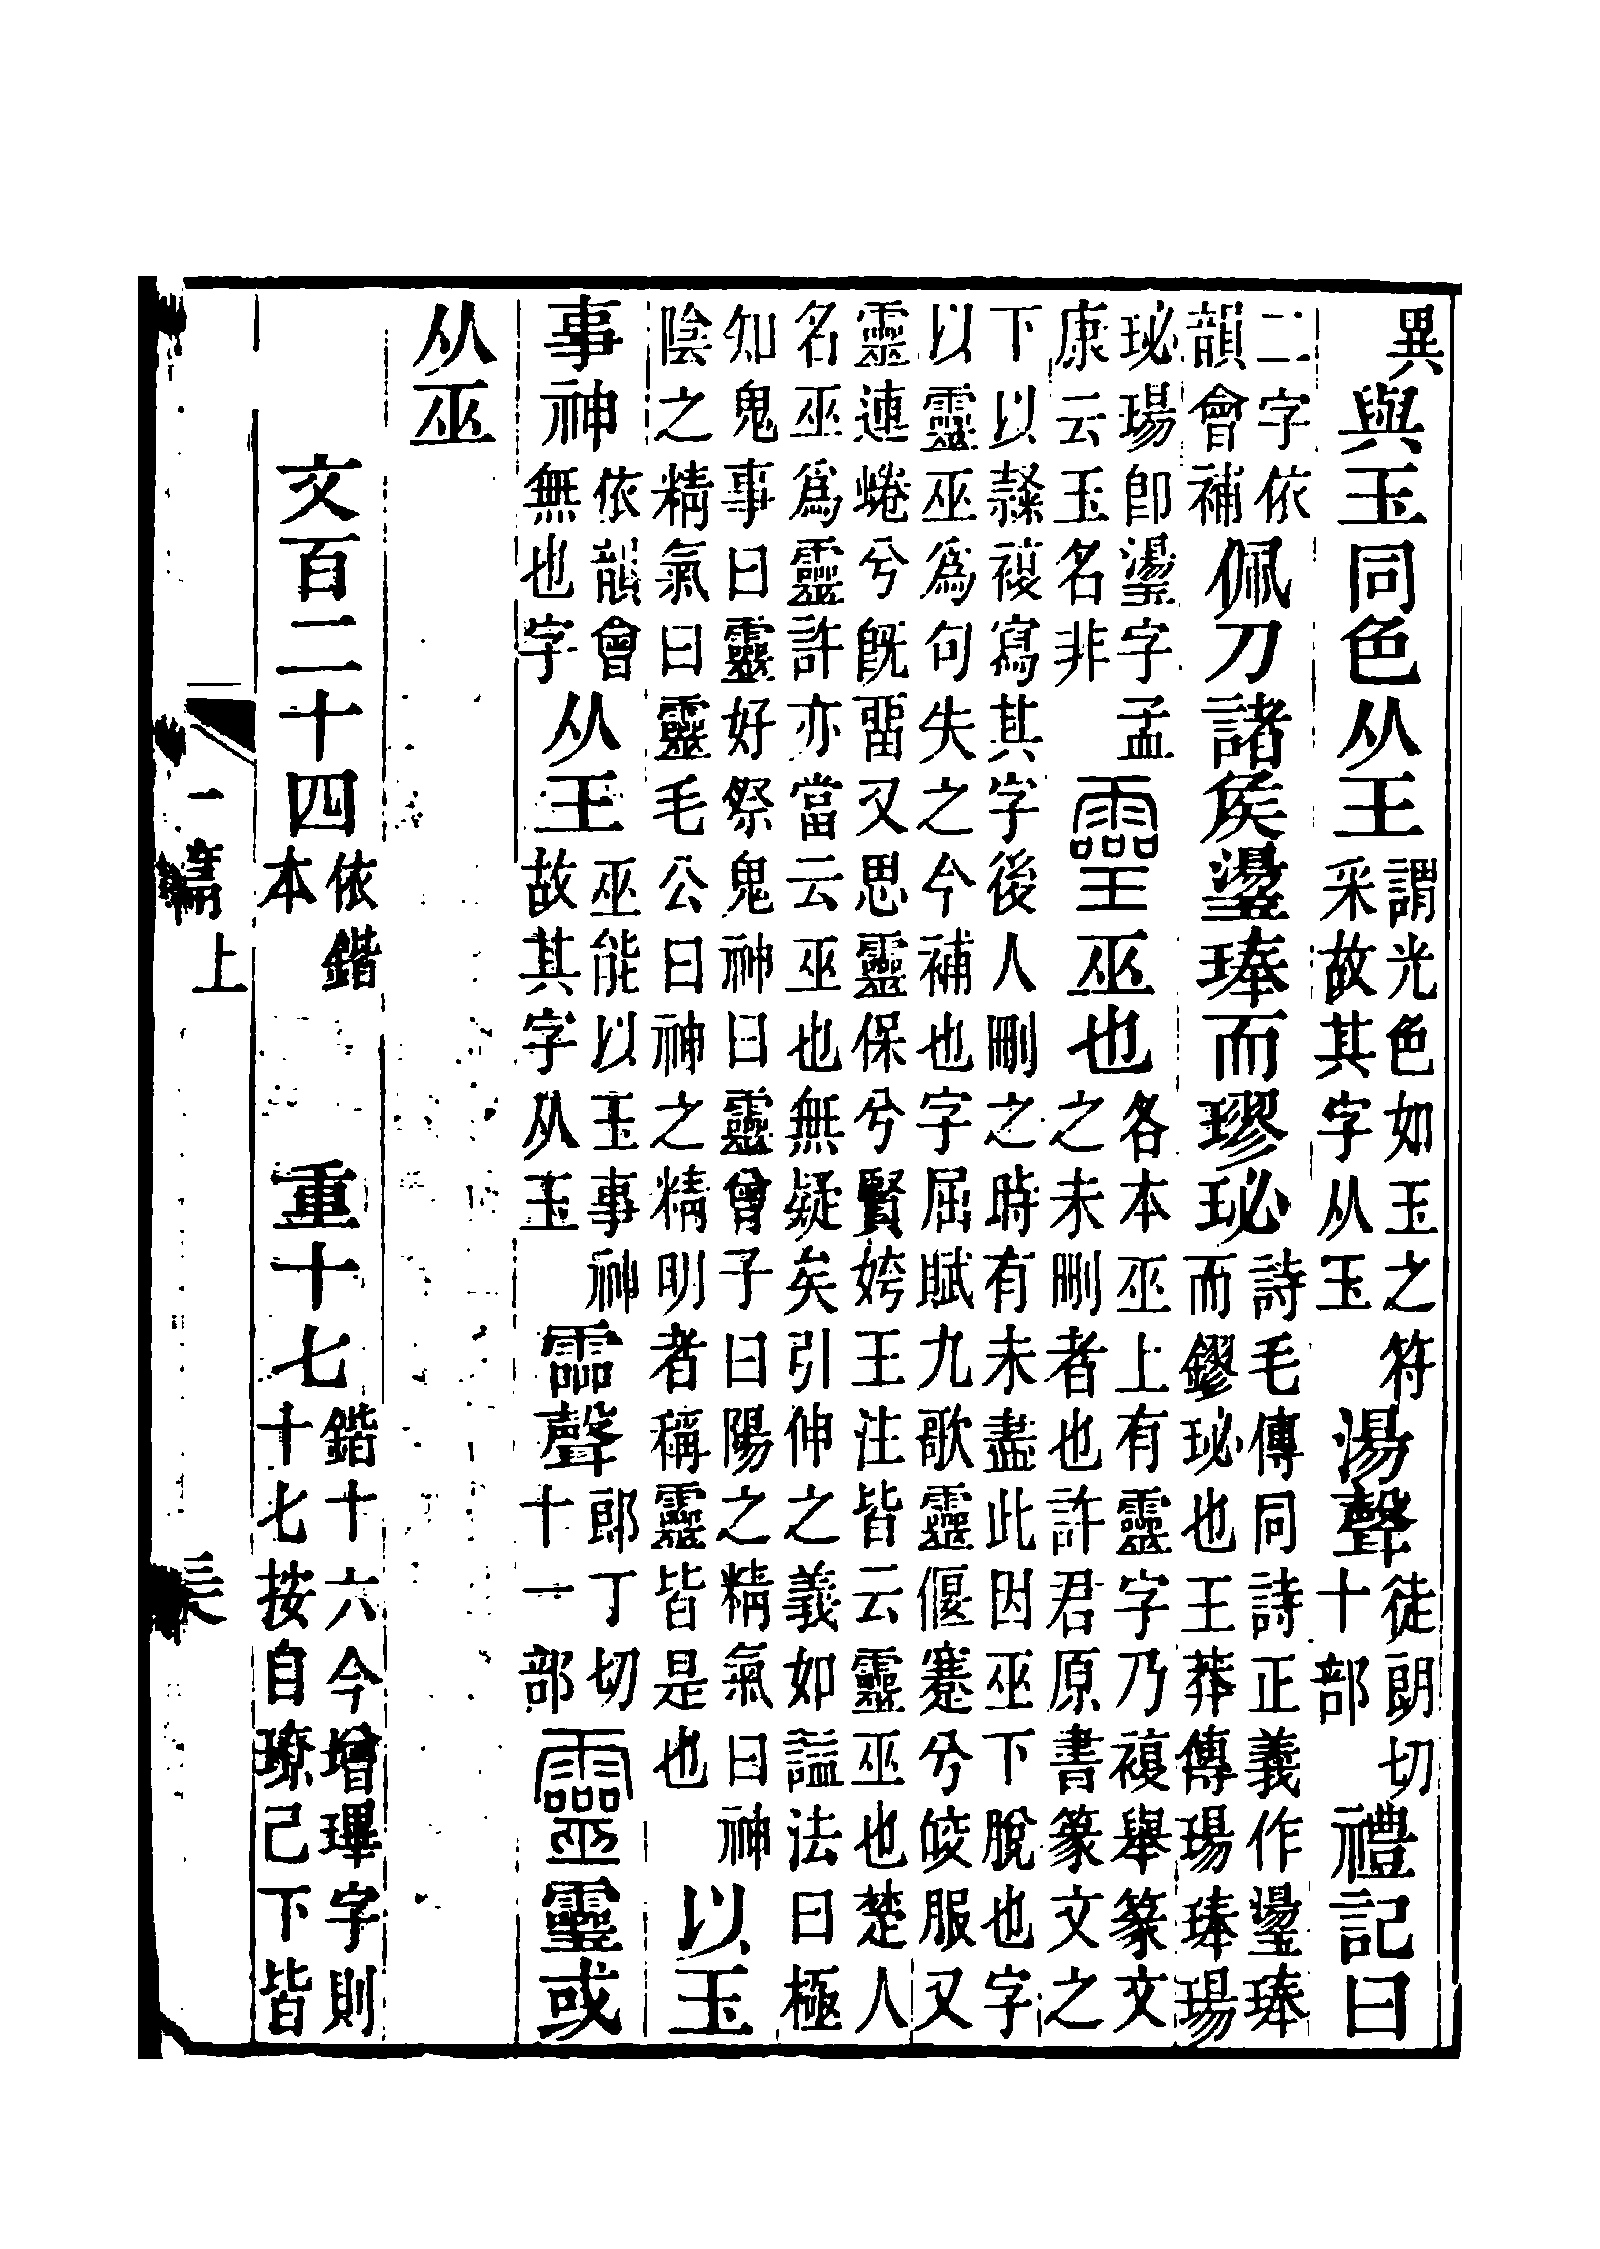 異
與玉同色从王
謂光色如玉之符
采故其字从玉
湯聲
徒朗切
十部
禮記曰
二字依
韻會補
佩刀諸矦璗琫而璆珌
詩毛傳同詩正義作璗琫
而鏐珌也王莽傳瑒琫瑒
珌瑒卽璗字孟
康云玉名非
𤫊巫也
各本巫上有靈字乃複舉篆文
之未刪者也許君原書篆文之
下以隸複寫其字後人刪之時有未盡此因巫下脫也字
以靈巫爲句失之今補也字屈賦九歌靈偃蹇兮皎服又
靈連蜷兮旣畱又思靈保兮賢姱王注皆云靈巫也楚人
名巫爲靈許亦當云巫也無疑矣引伸之義如謚法曰極
知鬼事曰靈好祭鬼神曰靈曾子曰陽之精氣曰神
陰之精氣曰靈毛公曰神之精明者稱靈皆是也
以玉
事神
依韻會
無也字
从王
巫能以玉事神
故其字从玉
霝聲
郎丁切
十一部
靈𤫊或
从巫
文百二十四
依鍇
本
重十七
鍇十六今增字則
十七按自璙己下皆
一篇上